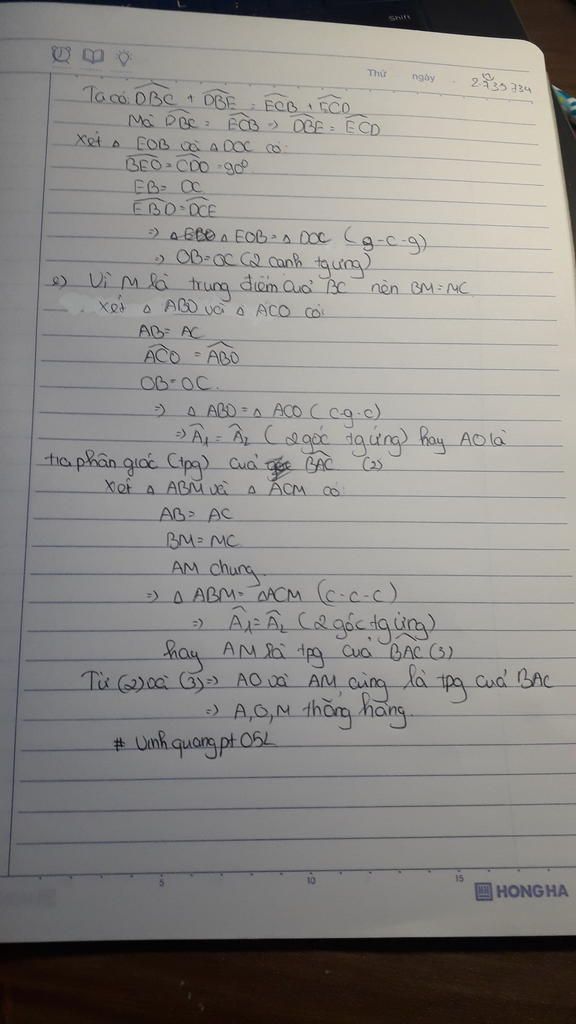 Shift
Thứ ngày
2.735 734
Ta có: DBC + DBE = ECB + ECD
Mà DBC = ECB => DBE = ECD
Xét △ EOB và △ DOC có:
BEO = CDO = 90°
EB = DC
EBO = DCE
=> △ EOB = △ DOC (g-c-g)
=> OB = OC (2 cạnh tg ứng)
e) Vì M là trung điểm của BC nên BM = MC
Xét △ ABO và △ ACO có:
AB = AC
ACO = ABO
OB = OC.
=> △ ABO = △ ACO (c-g-c)
=> Â1 = Â2 (2 góc tg ứng) hay AO là
tia phân giác (tpg) của BAC (2)
Xét △ ABM và △ ACM có:
AB = AC
BM = MC
AM chung.
=> △ ABM = △ACM (c-c-c)
=> Â1 = Â2 (2 góc tg ứng)
hay AM là tpg của BAC (3)
Từ (2) và (3) => AO và AM cùng là tpg của BAC
=> A, O, M thẳng hàng.
# Vinhquangpt05L
5 10 15
HONG HA